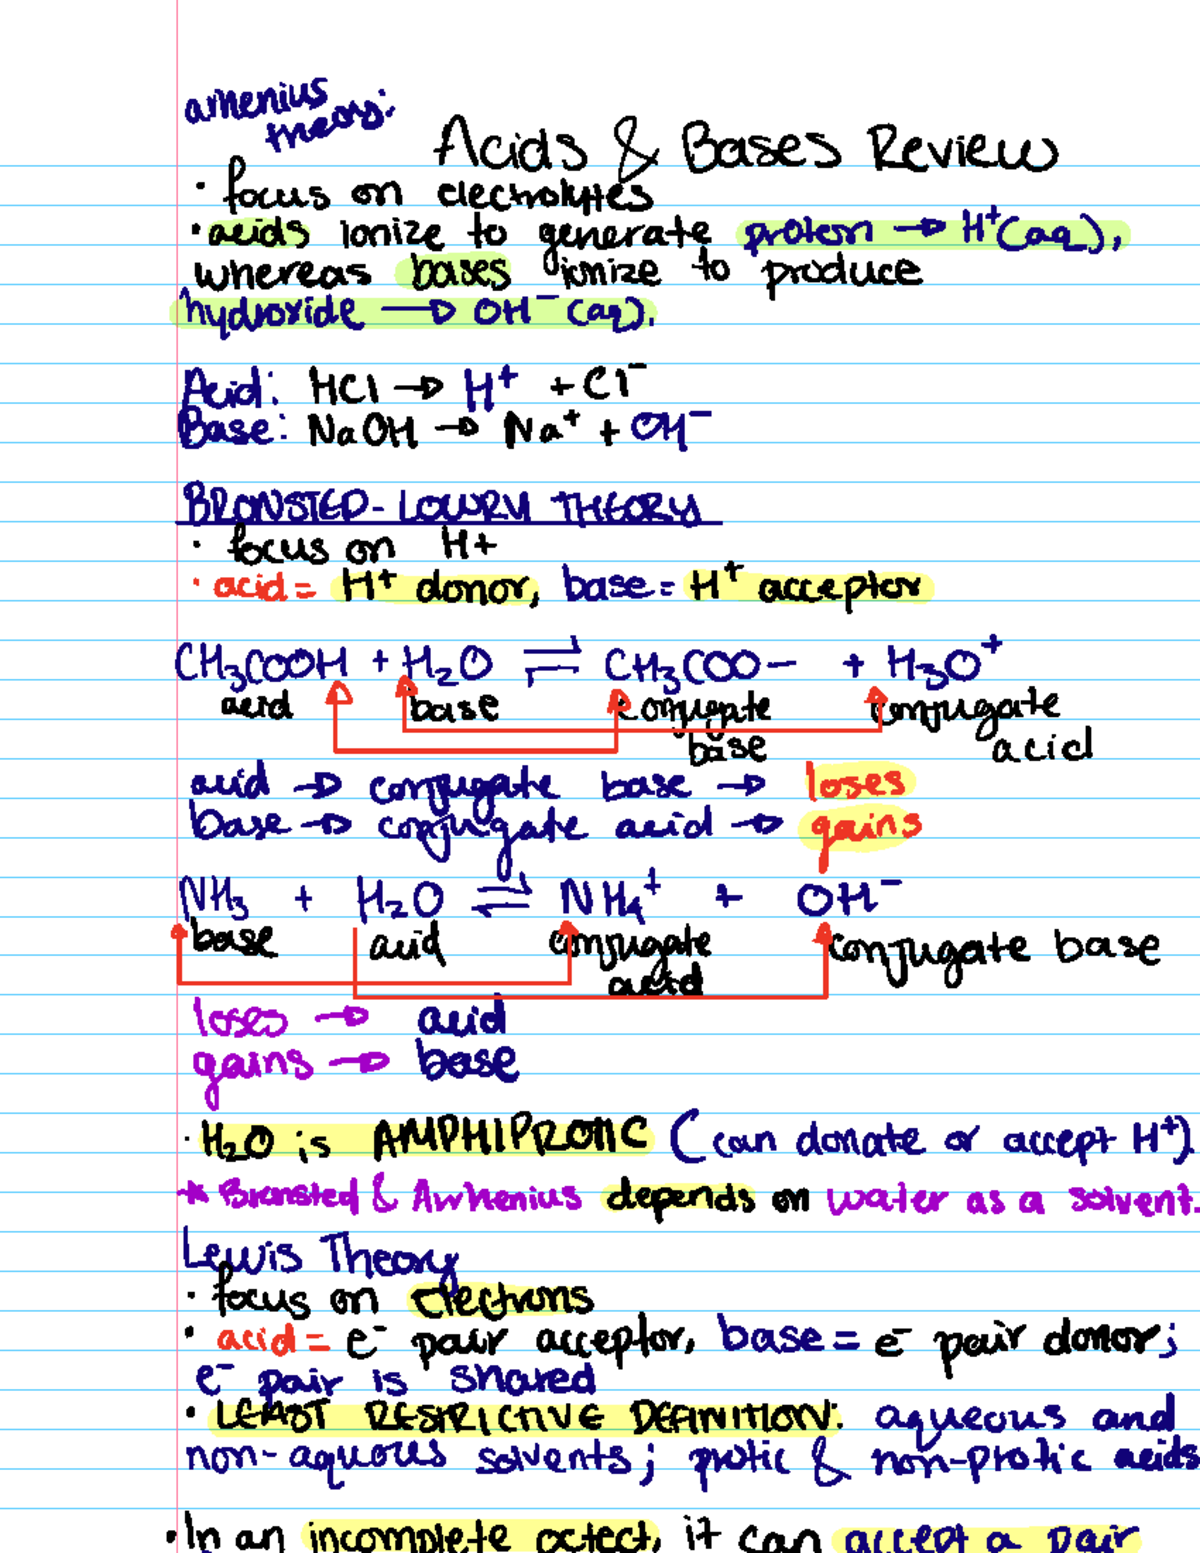 arrhenius
theory:
Acids & Bases Review
• focus on electrolytes
• acids ionize to generate proton → H⁺(aq),
whereas bases ionize to produce
hydroxide → OH⁻(aq).
Acid: HCl → H⁺ + Cl⁻
Base: NaOH → Na⁺ + OH⁻
BRONSTED-LOWRY THEORY
• focus on H+
• acid = H⁺ donor, base = H⁺ acceptor
CH₃COOH + H₂O ⇌ CH₃COO− + H₃O⁺
acid base conjugate conjugate
base acid
acid → conjugate base → loses
base → conjugate acid → gains
NH₃ + H₂O ⇌ NH₄⁺ + OH⁻
base acid conjugate conjugate base
acid
loses → acid
gains → base
• H₂O is AMPHIPROTIC (can donate or accept H⁺).
* Bronsted & Arrhenius depends on water as a solvent.
Lewis Theory
• focus on electrons
• acid = e⁻ pair acceptor, base = e⁻ pair donor;
e⁻ pair is shared
• LEAST RESTRICTIVE DEFINITION: aqueous and
non-aquous solvents; protic & non-protic acids
• In an incomplete octect, it can accept a pair